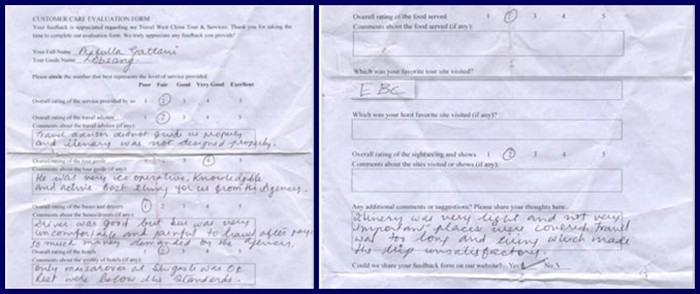 CUSTOMER CARE EVALUATION FORM
Your feedback is appreciated regarding our Travel West China Tour & Services. Thank you for taking the
time to complete our evaluation form. We truly appreciate any feedback you provide!
Your Full Name Prafulla Gattani
Your Guide Name Lobsang
Please circle the number that best represents the level of service provided
Poor Fair Good Very Good Excellent
Overall rating of the service provided by us 1 2 3 4 5
Overall rating of the travel advisor 1 2 3 4 5
Comments about the travel advisor (if any):
Travel advisor did not guide us properly
and itenary was not designed properly.
Overall rating of the tour guide 1 2 3 4 5
Comments about the tour guide (if any):
He was very co operative, Knowledgable
and active best thing for us from the Agency.
Overall rating of the buses and drivers 1 2 3 4 5
Comments about the buses/drivers (if any):
Driver was good but bus was very
uncomfortable and painful to travel after pay
to much money demanded by the agency.
Overall rating of the hotels 1 2 3 4 5
Comments about the quality of hotels (if any):
Only at was OK
Rest were below the standards.
Overall rating of the food served 1 2 3 4 5
Comments about the food served (if any):
Which was your favorite tour site visited?
EBC
Which was your least favorite site visited (if any)?
Overall rating of the sightseeing and shows 1 2 3 4 5
Comments about the sites visited or shows (if any):
Any additional comments or suggestions? Please share your thoughts here.
Itinery was very tight and not very
important places were covered. Travel
was too long and tiring which made
the trip unsatisfactory.
Could we share your feedback form on our website? Yes No